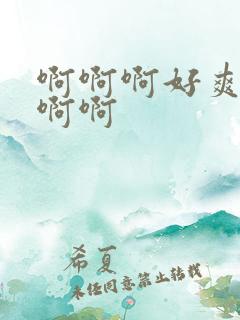 啊啊啊好爽
啊啊
希夏
未经同意禁止转载